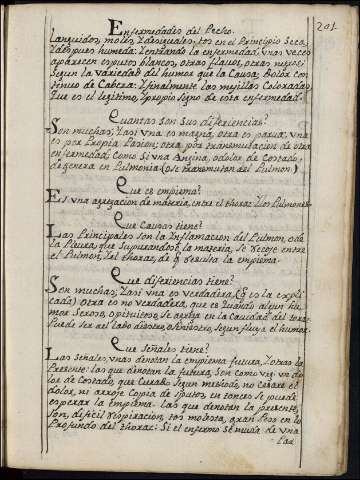 Enfermedades del Pecho.
201
languidos, moles, y desiguales; tos en el Principio seca,
y despues humeda: y entrando la enfermedad, unas veces
aparecen esputos blancos, otras flavos, otras negros;
segun la variedad del humor que la causa: Dolor con
tenuo de Cabeza: y finalmente las mejillas Coloradas,
que es el legitimo, y propio signo de esta enfermedad.
Quantas son sus diferiencias?
Son muchas; y asi una es magna, otra es parva; una
es por Propia Pasion; otra por transmutacion de otra
enfermedad; Como si una Angina, o dolor de Costado,
degenera en Pulmonia (o se transmuton del Pulmon.)
Que es empiema?
Es una agregacion de materia, entre el thorax y los Pulmones.
Que Causas tiene?
Las Principales son la Inflamacion del Pulmon, o de
la Pleura; que supurandose la materia, se recoge entre
el Pulmon, y el thorax, de q resulta la empiema.
Que diferiencias tiene?
Son muchas; y asi una es verdadera, (q es la expli
cada) otra es no verdadera, que es quando algun hu
mor seroso, o pituitoso se agrega en la Cauidad del torax.
Puede ser a el lado diestro, o siniestro, segun fluye el humor.
Que señales tiene?
Las señales, unas denotan la empiema futura, y otras la
Presente: las que denotan la futura, son como v.g. un do
lor de Costado, que Curado segun metodo, no cesare el
dolor, ni arroje copia de sputos, entonces se puede
esperar la empiema. las que denotan la presente,
son, dificil respiracion, tos molesta, gran Peso en lo
Profundo del thorax: Si el enfermo se muda de una